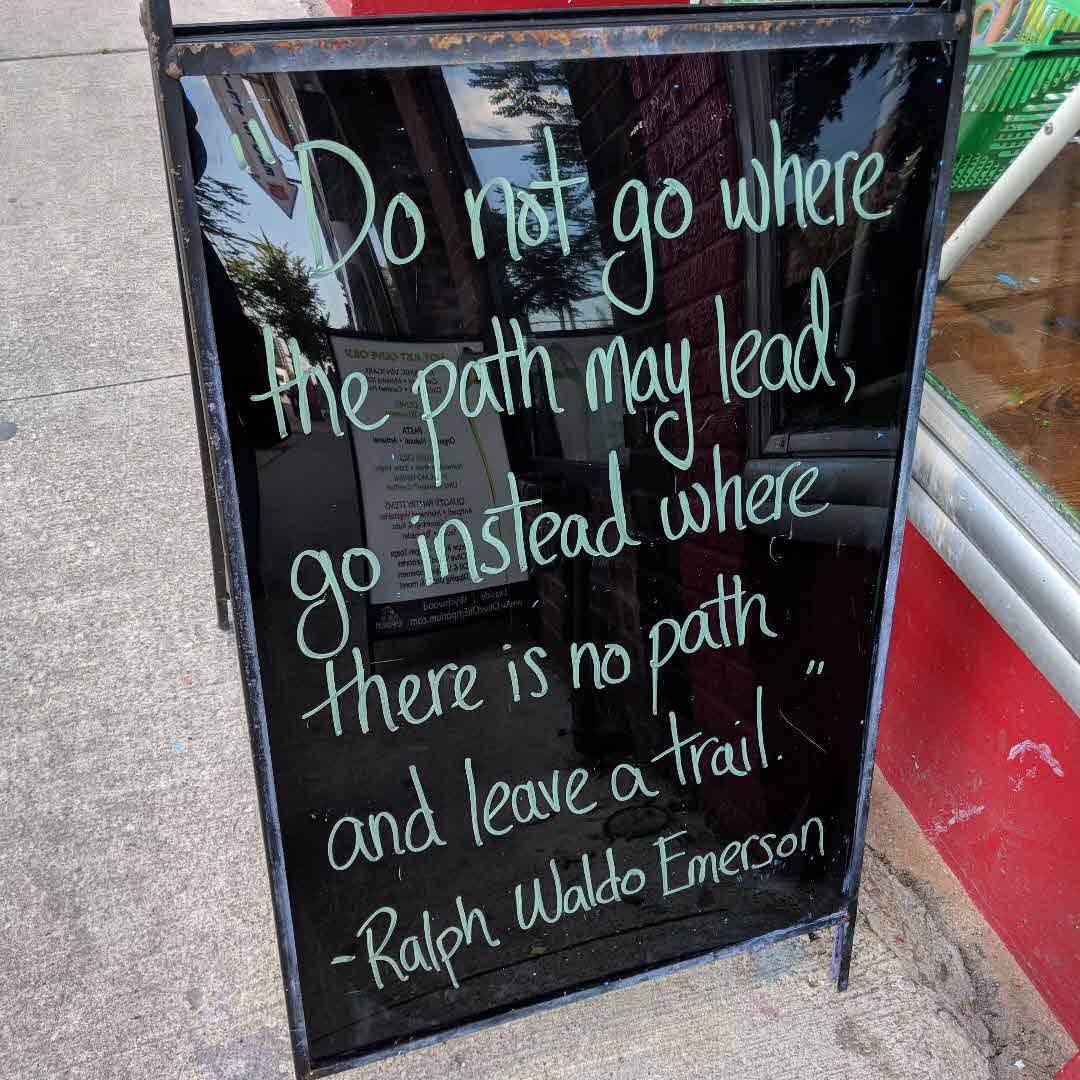 "Do not go where
the path may lead,
go instead where
there is no path
and leave a trail."
-Ralph Waldo Emerson